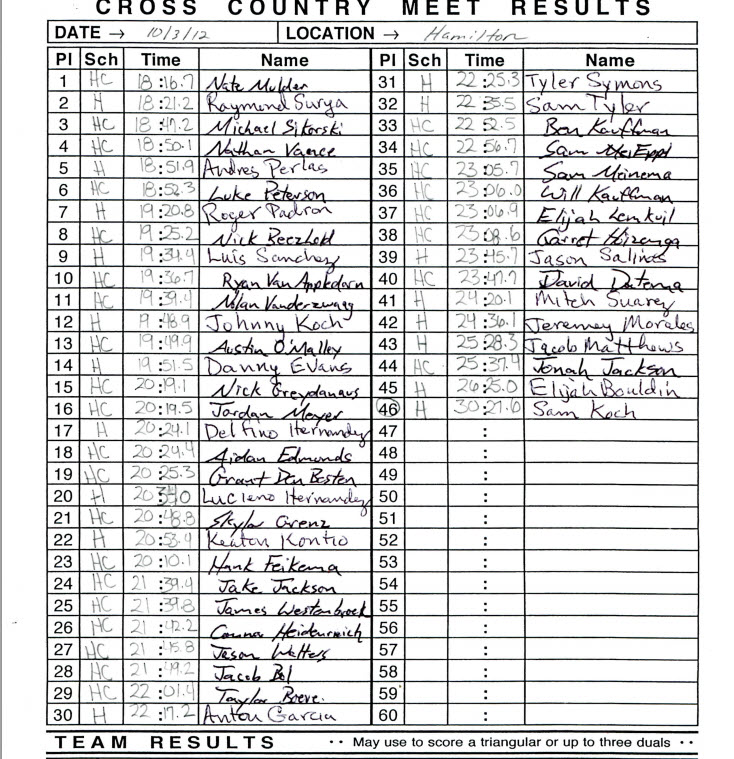 CROSS COUNTRY MEET RESULTS
DATE → 10/3/12 LOCATION → Hamilton
Pl Sch Time Name Pl Sch Time Name
1 HC 18:16.7 Nate Mulder 31 H 22:25.3 Tyler Symons
2 H 18:21.2 Raymond Surya 32 H 22:35.5 Sam Tyler
3 HC 18:47.2 Michael Sikorski 33 HC 22:52.5 Ben Kauffman
4 HC 18:50.1 Nathan Vance 34 HC 22:56.7 Sam
5 H 18:51.9 Andres Perlas 35 HC 23:05.7 Sam Meinema
6 HC 18:52.3 Luke Peterson 36 HC 23:06.0 Will Kauffman
7 H 19:20.8 Roger Padron 37 HC 23:06.9 Elijah Lemkuil
8 HC 19:25.2 Nick Beczhold 38 HC 23:08.6 Garret Hoizenga
9 H 19:34.9 Luis Sanchez 39 H 23:45.7 Jason Salinas
10 HC 19:36.7 Ryan Van Appledorn 40 HC 23:47.7 David Datema
11 HC 19:39.4 Nolan Vanderzwaag 41 H 24:20.1 Mitch Suarez
12 H 19:48.9 Johnny Koch 42 H 24:36.1 Jeremey Morales
13 HC 19:49.9 Austin O'Malley 43 H 25:28.3 Jacob Matthews
14 H 19:51.5 Danny Evans 44 HC 25:37.4 Jonah Jackson
15 HC 20:19.1 Nick Greydanus 45 H 26:25.0 Elijah Bouldin
16 HC 20:19.5 Jordan Meyer 46 H 30:21.0 Sam Koch
17 H 20:24.1 Delfino Hernandez 47 :
18 HC 20:24.4 Aidan Edmonds 48 :
19 HC 20:25.3 Grant Den Besten 49 :
20 H 20: Luciano Hernandez 50 :
21 HC 20:48.8 Skylar Grenz 51 :
22 H 20:53.9 Keaton Kontio 52 :
23 HC 20:10.1 Hank Feikema 53 :
24 HC 21:39.4 Jake Jackson 54 :
25 HC 21:39.8 James Westenbroek 55 :
26 HC 21:42.2 Connor 56 :
27 HC 21:45.8 Jason Walters 57 :
28 HC 21:49.2 Jacob Bol 58 :
29 HC 22:01.4 Taylor Boeve 59 :
30 H 22:17.2 Anton Garcia 60 :
TEAM RESULTS •• May use to score a triangular or up to three duals ••